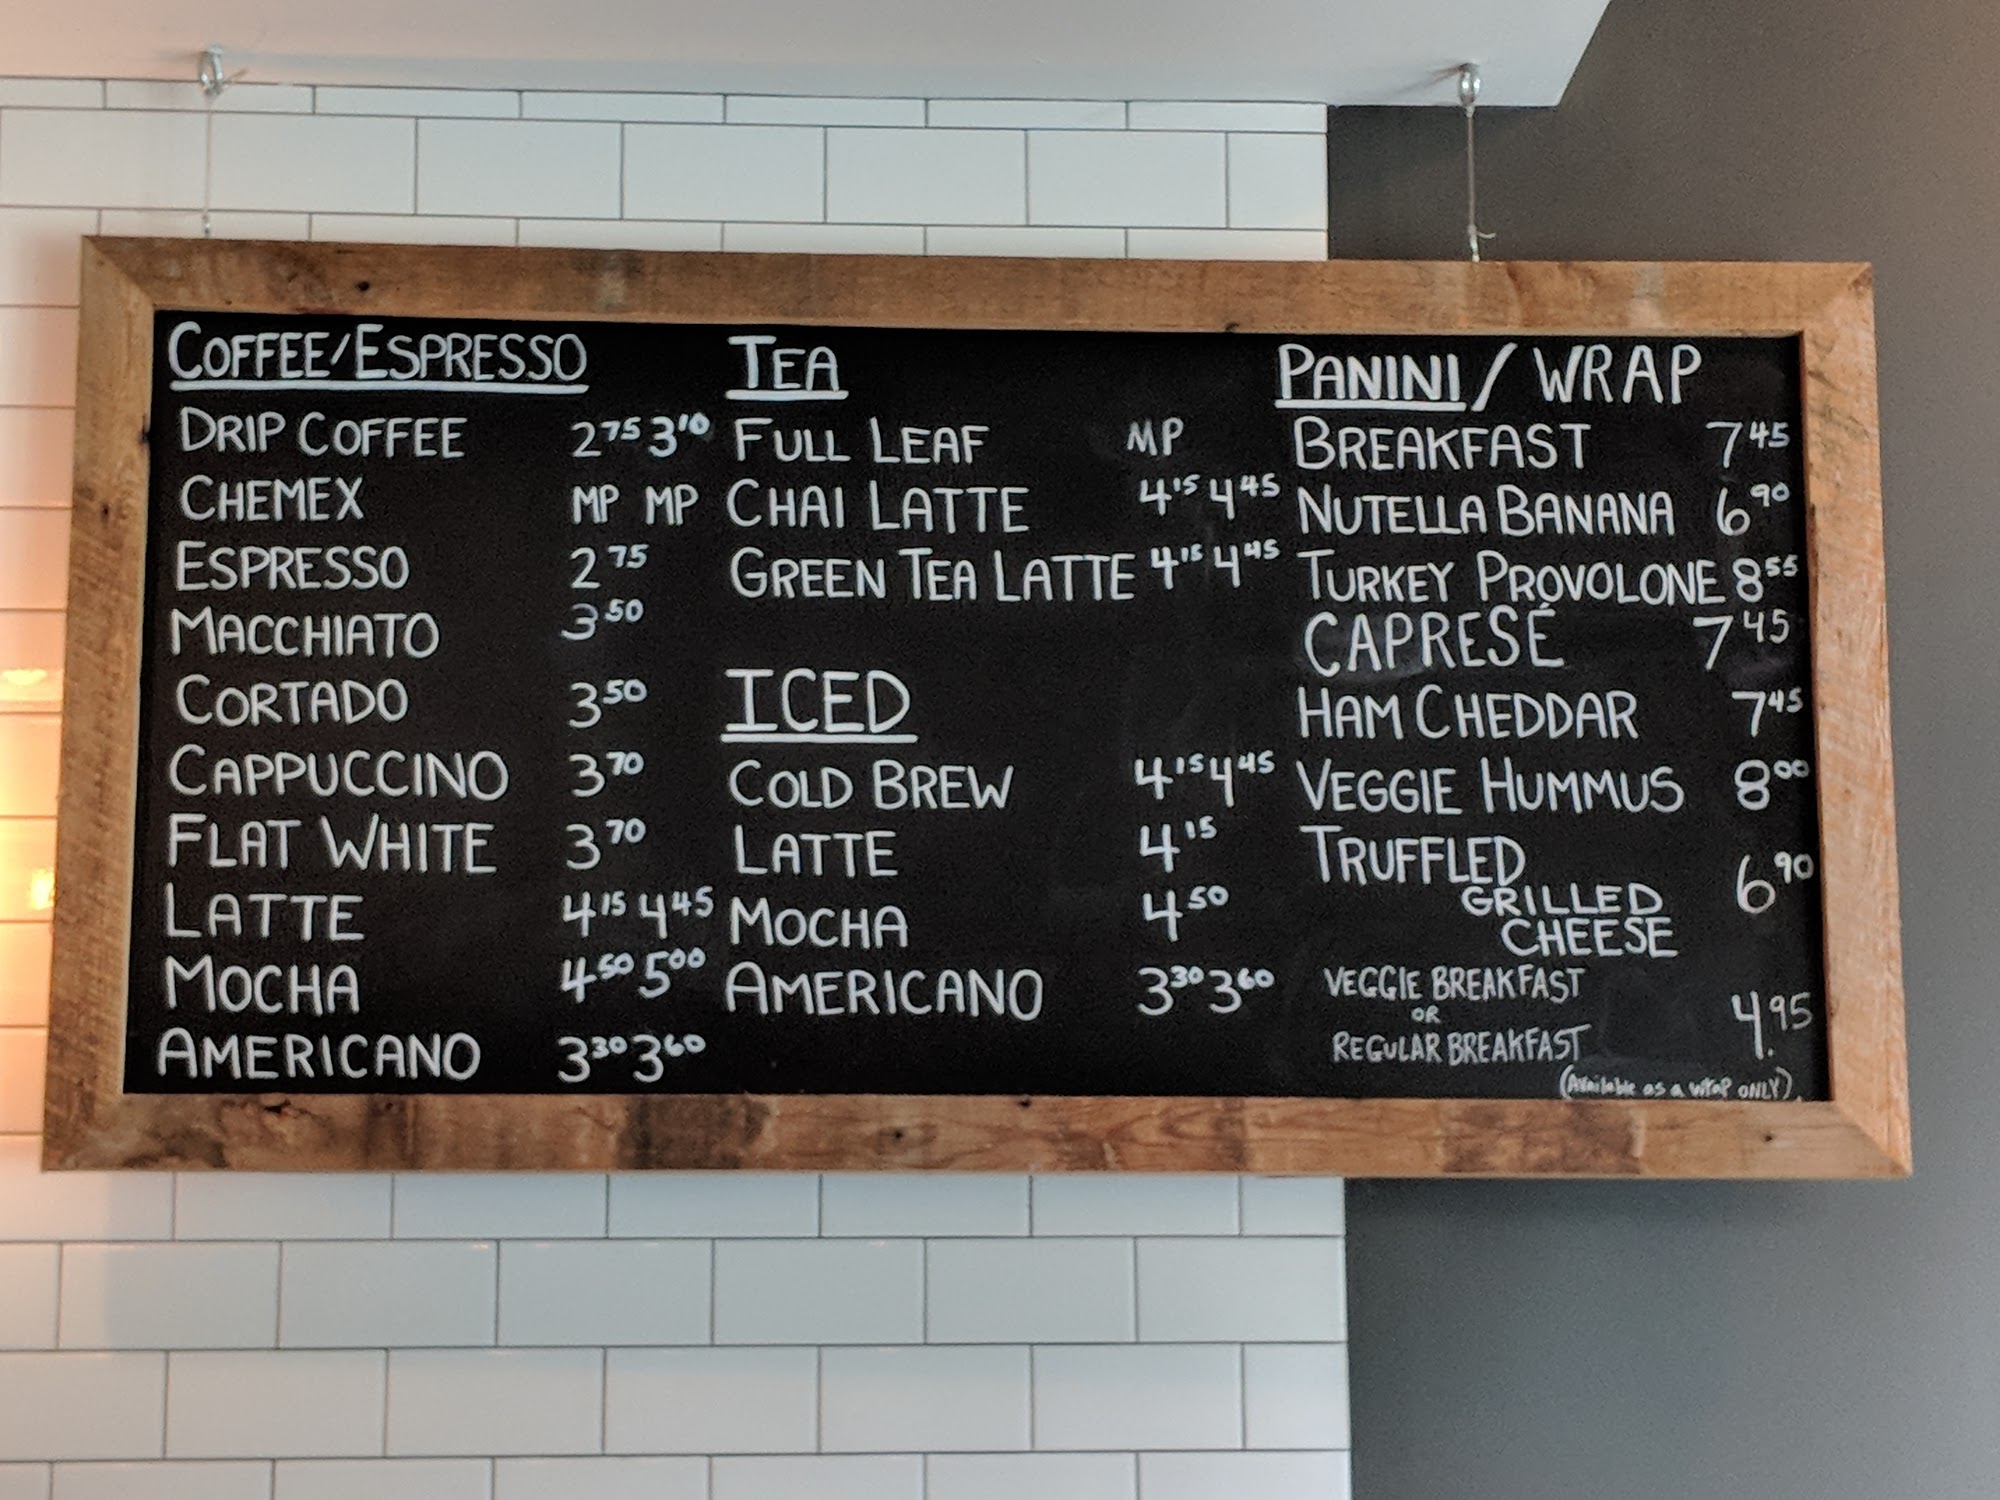 COFFEE/ESPRESSO
DRIP COFFEE 2.75 3.10
CHEMEX MP MP
ESPRESSO 2.75
MACCHIATO 3.50
CORTADO 3.50
CAPPUCCINO 3.70
FLAT WHITE 3.70
LATTE 4.15 4.45
MOCHA 4.50 5.00
AMERICANO 3.30 3.60
TEA
FULL LEAF MP
CHAI LATTE 4.15 4.45
GREEN TEA LATTE 4.15 4.45
ICED
COLD BREW 4.15 4.45
LATTE 4.15
MOCHA 4.50
AMERICANO 3.30 3.60
PANINI / WRAP
BREAKFAST 7.45
NUTELLA BANANA 6.90
TURKEY PROVOLONE 8.55
CAPRESÉ 7.45
HAM CHEDDAR 7.45
VEGGIE HUMMUS 8.00
TRUFFLED
GRILLED 6.90
CHEESE
VEGGIE BREAKFAST
OR 4.95
REGULAR BREAKFAST
(Available as a wrap ONLY)